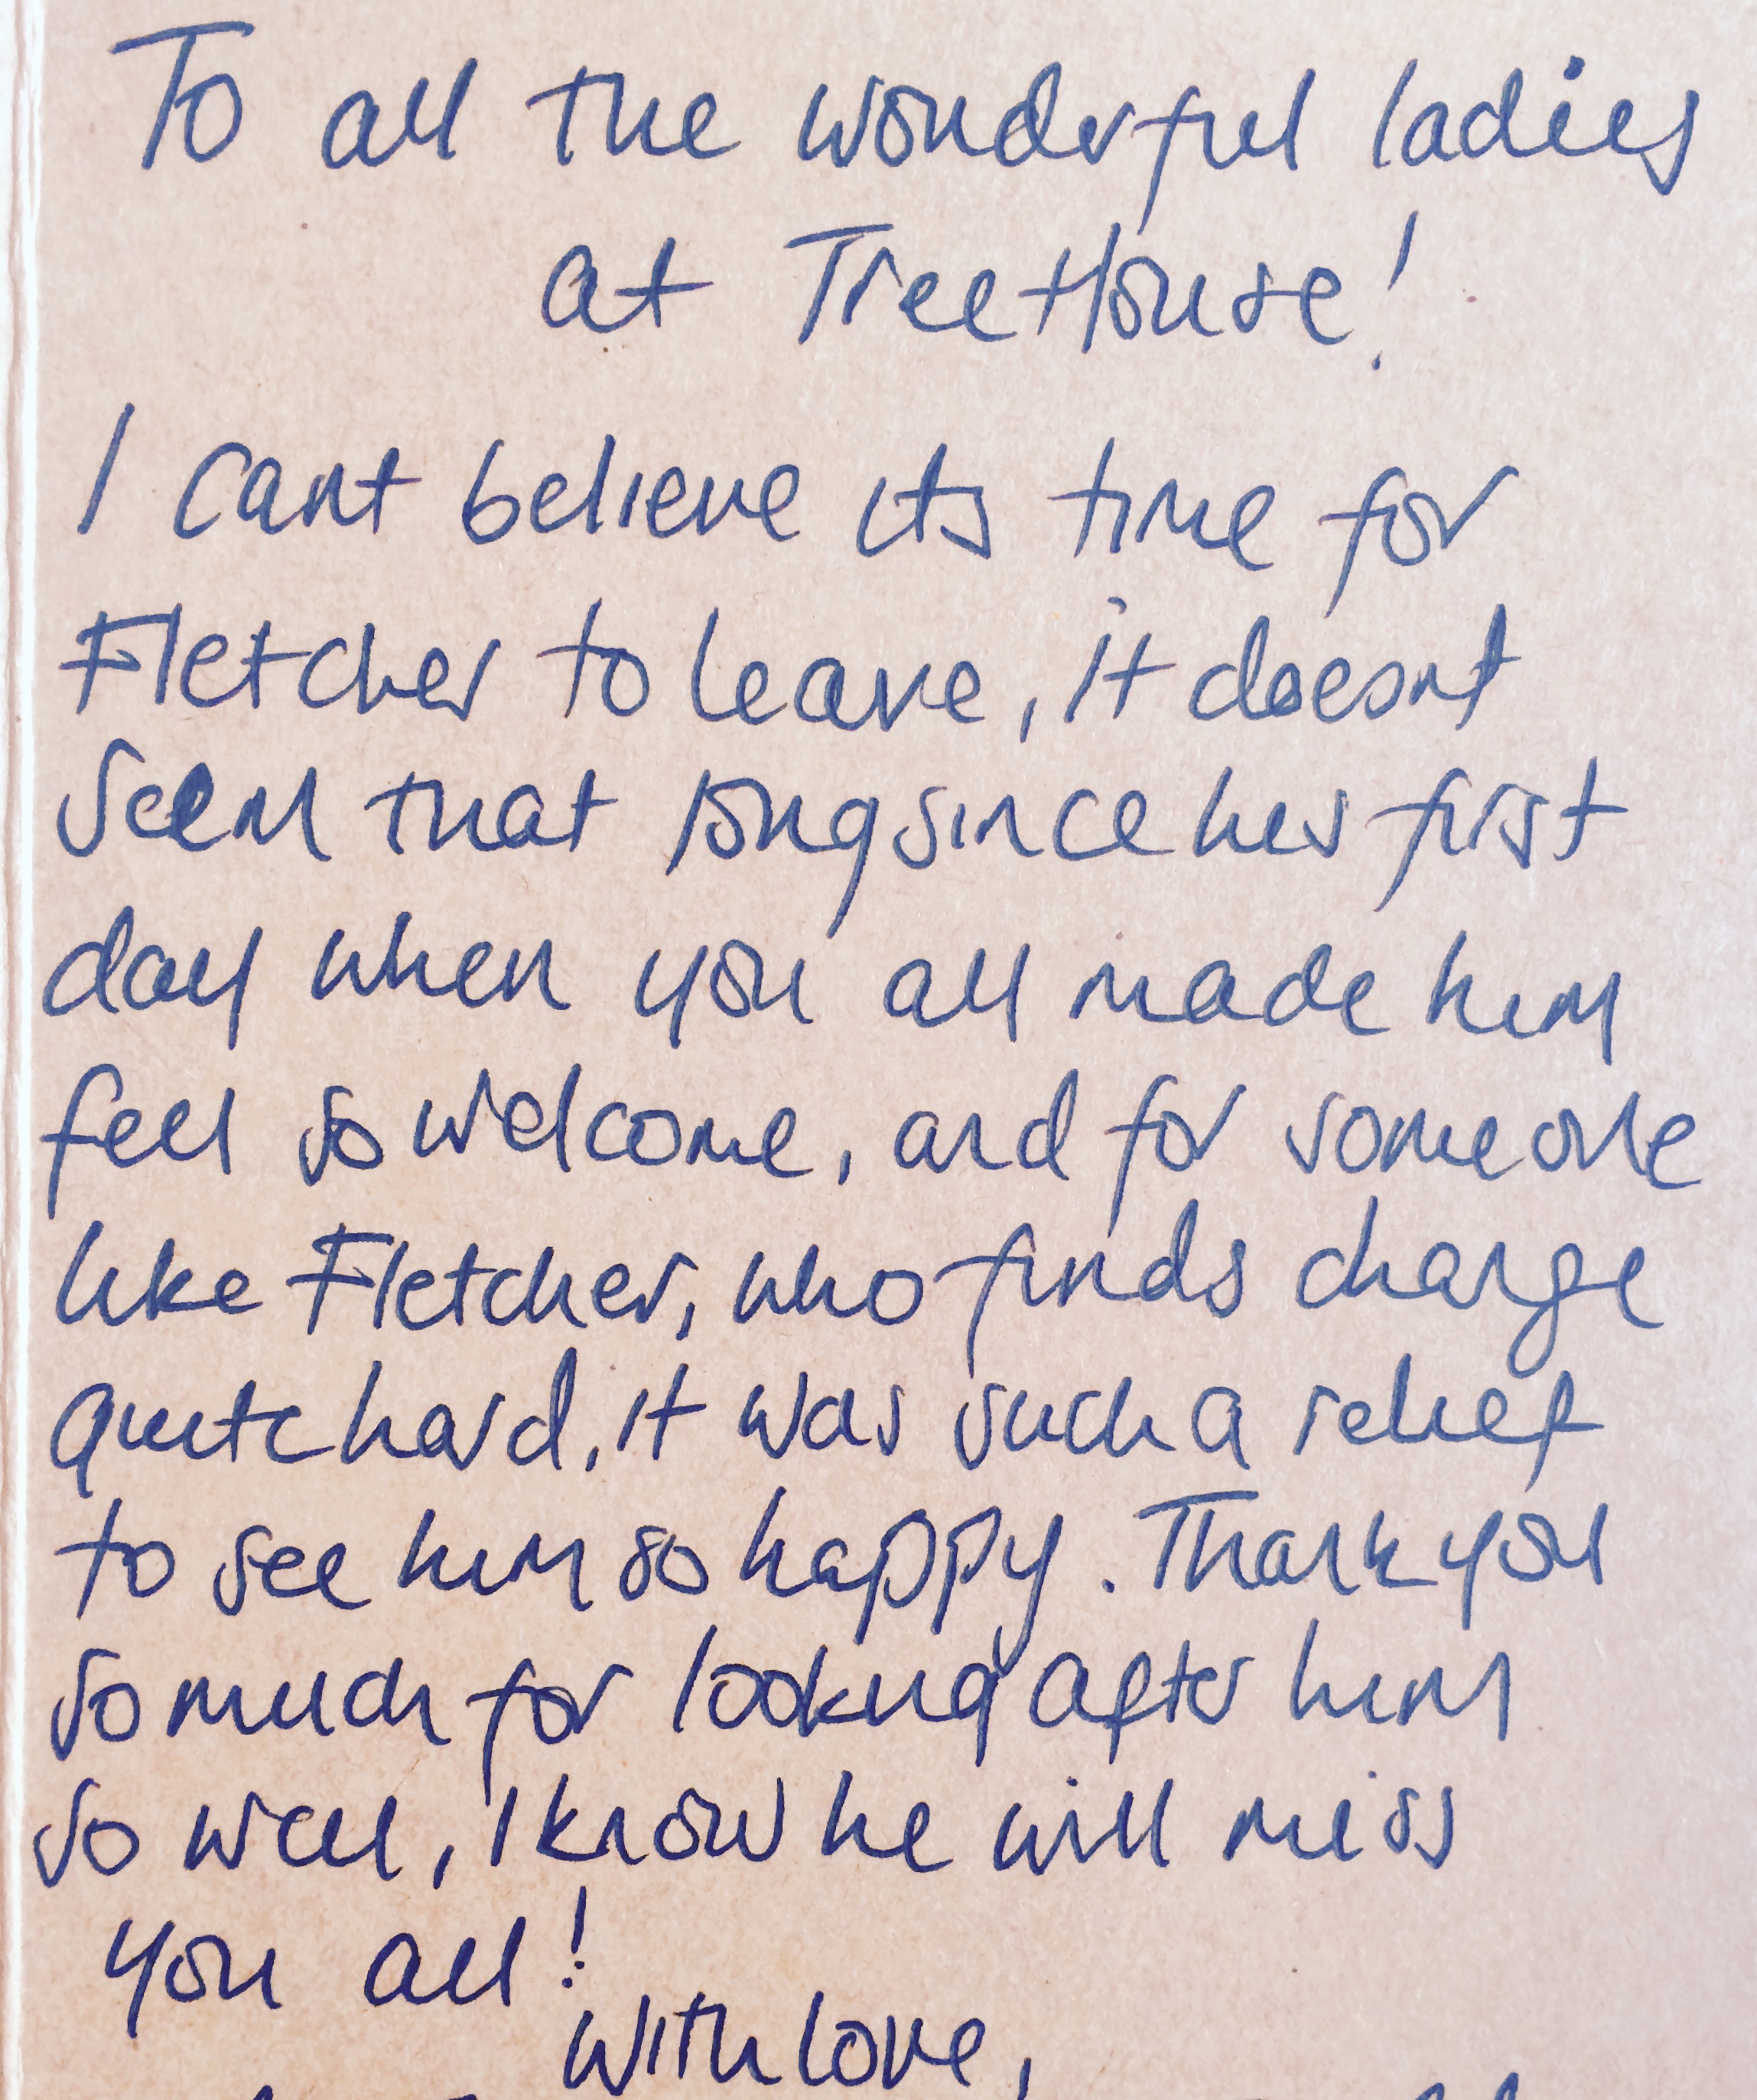 To all the wonderful ladies
at TreeHouse!
I cant believe its time for
Fletcher to leave, it doesnt
seem that long since his first
day when you all made him
feel so welcome, and for someone
like Fletcher, who finds change
quite hard, it was such a relief
to see him so happy. Thank you
so much for looking after him
so well, I know he will miss
you all!
With love,